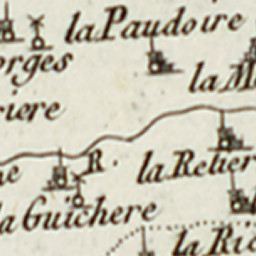 la Paudoire
orges
la M
riere
R.
la Relier
la Guichere
la Ri